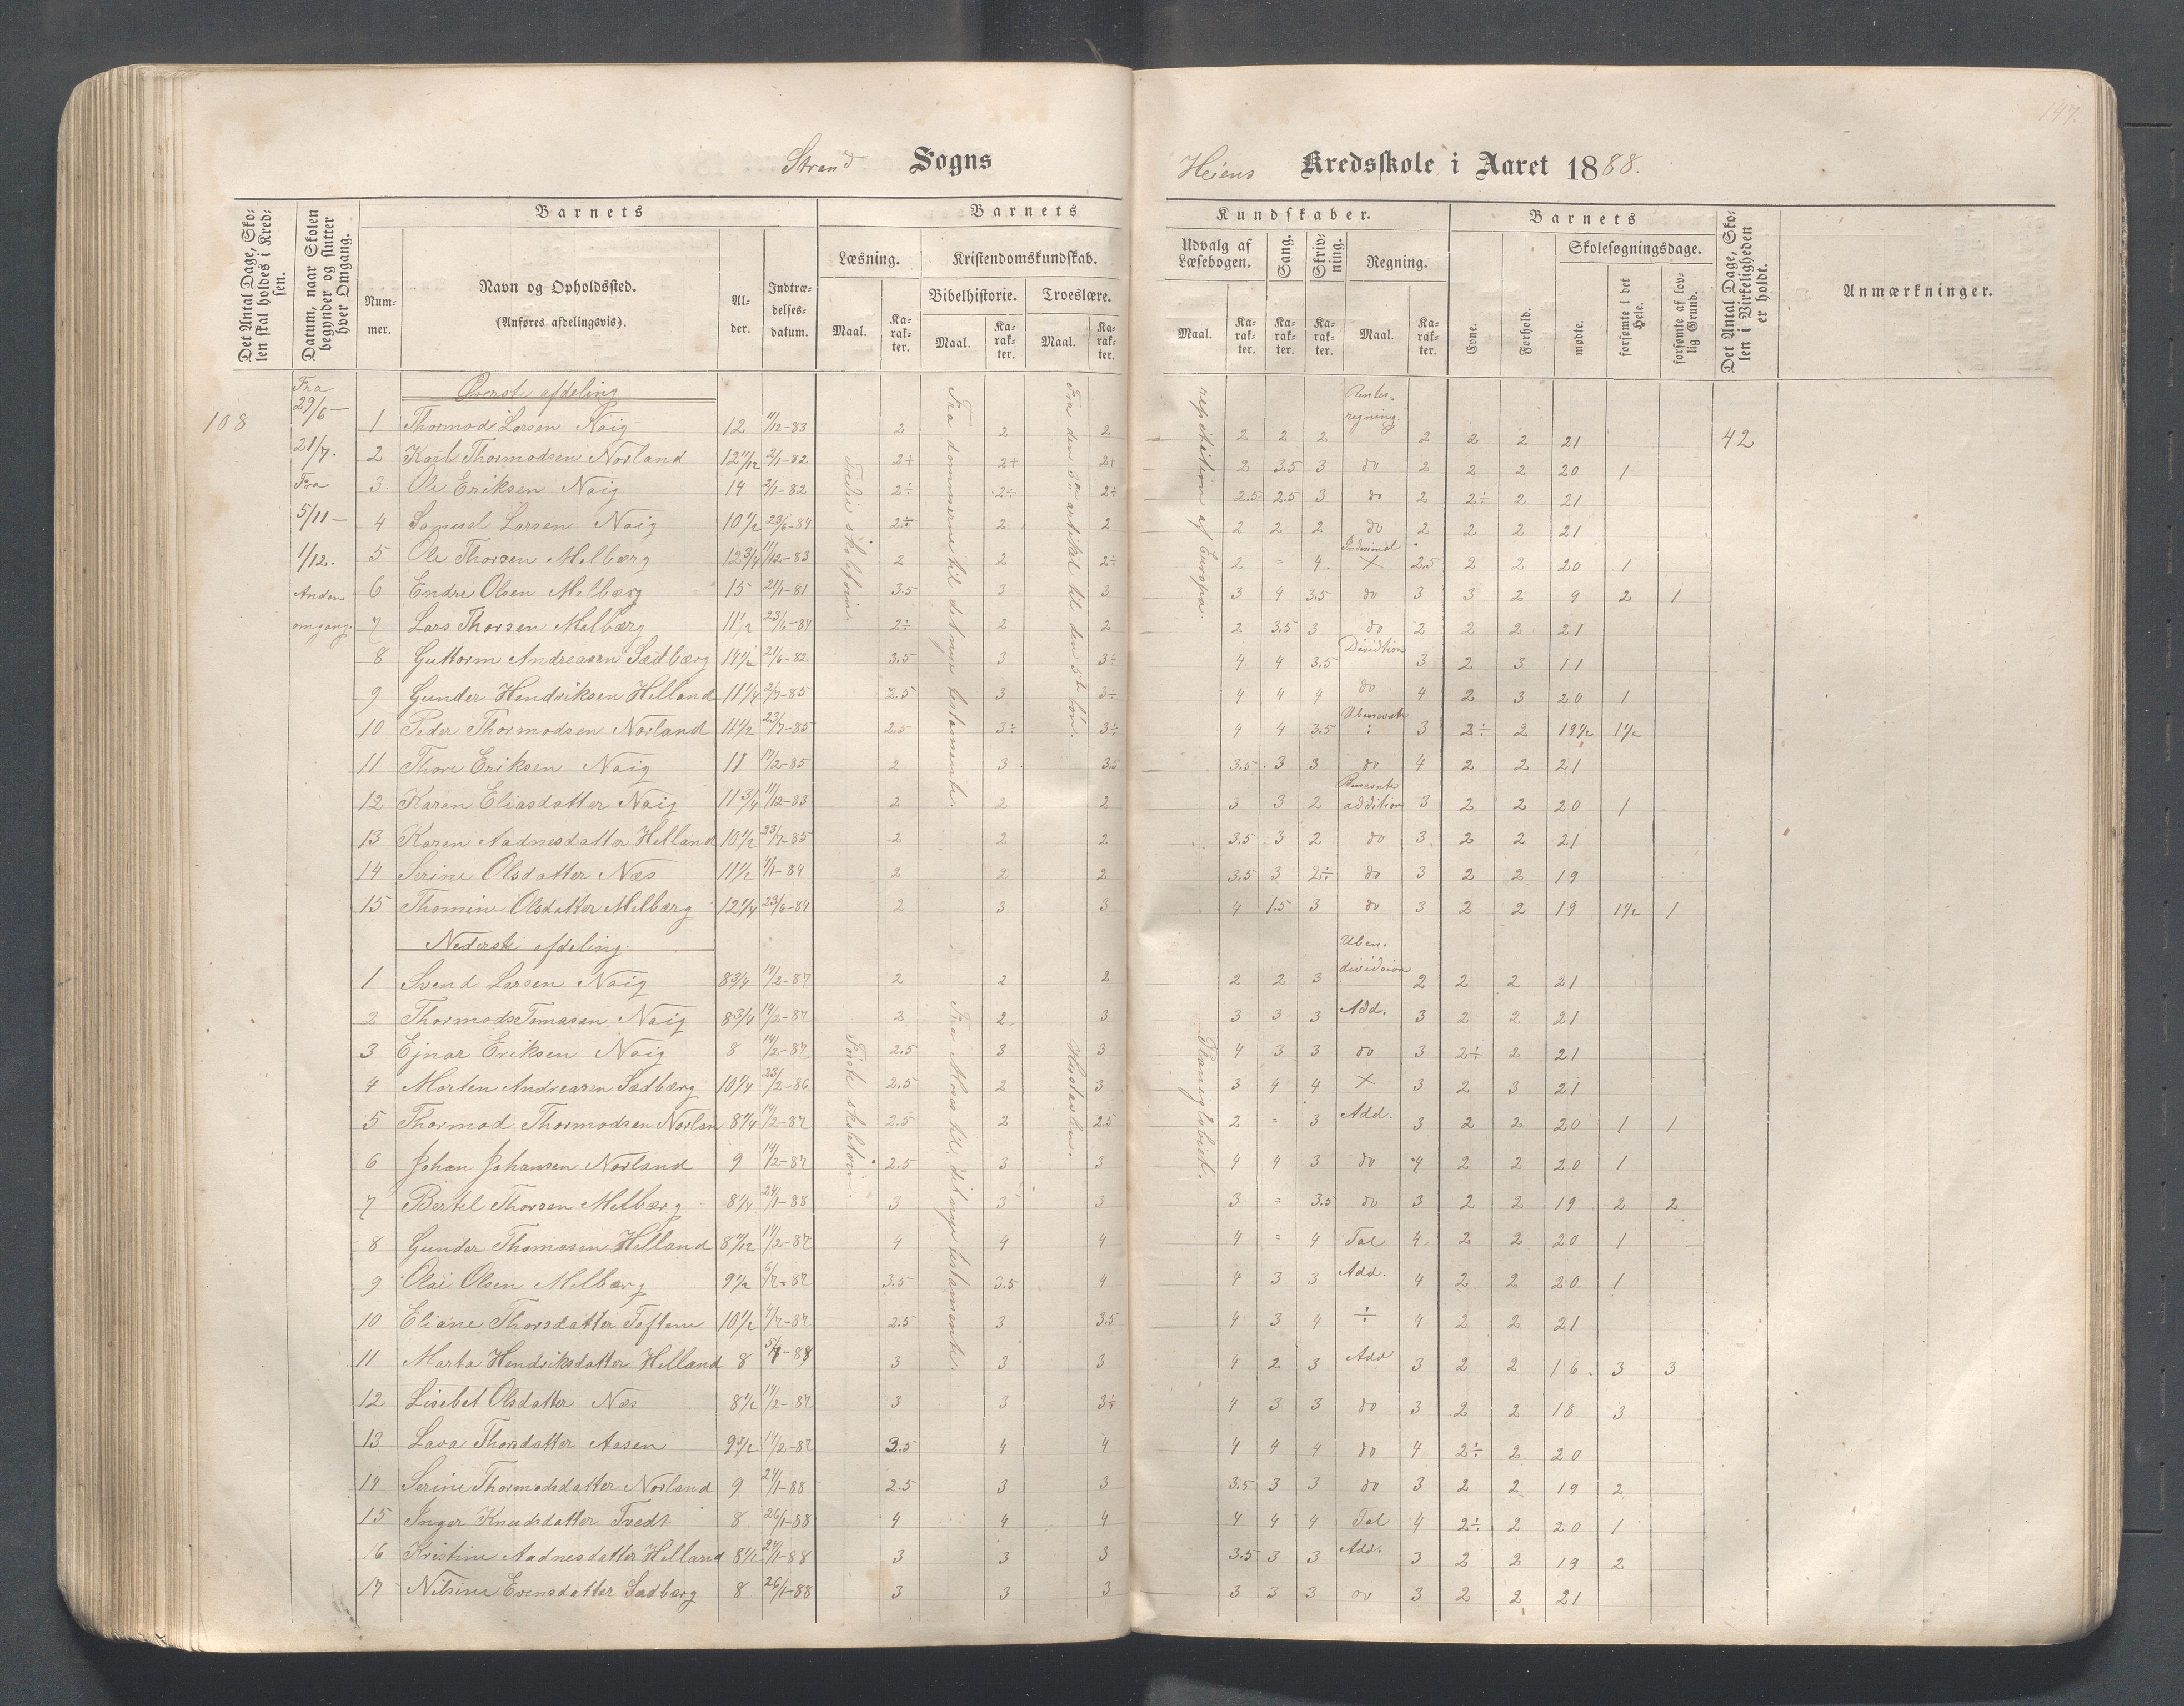 147.
Strand Sogns
Heiens Kredsskole i Aaret 1888.
Det Antal Dage, Skolen skal holdes i Kredsen.
Datum, naar Skolen begynder og slutter hver Omgang.
Barnets
Nummer.
Navn og Opholdssted.
(Anføres afdelingsvis).
Alder.
Indtrædelsesdatum.
Barnets
Læsning.
Kristendomskundskab.
Bibelhistorie.
Troeslære.
Maal.
Karakter.
Maal.
Karakter.
Maal.
Karakter.
Kundskaber.
Udvalg af Læsebogen.
Sang.
Skrivning.
Regning.
Maal.
Karakter.
Karakter.
Karakter.
Maal.
Karakter.
Barnets
Evne.
Forhold.
Skolesøgningsdage.
mødte.
forsømte i det Hele.
forsømte af lovlig Grund.
Det Antal Dage, Skolen i Virkeligheden er holdt.
Anmærkninger.
108
Fra 29/6 – 21/7. Fra 5/11 – 1/12. Anden omgang.
Øverste afdeling
Tredie skoletrin
Fra dommerne til det nye testamente.
Fra den 3die artikel til den 5te bøn.
repetition af Europa.
1 Thormod Larsen Naig 12 11/12-83 2 2 2 2 2 2 Rentesregning. 2 2 2 21 42
2 Karl Thormodsen Norland 12 11/12 2/1-82 2+ 2+ 2+ 2 3.5 3 do 2 2 2 20 1
3 Ole Eriksen Naig 14 2/1-82 2÷ 2÷ 2÷ 2.5 2.5 3 do 2 2÷ 2 21
4 Samuel Larsen Naig 10 1/2 23/6-84 2÷ 2 2 2 2 2 do 2 2 2 21
5 Ole Thorsen Melbærg 12 3/4 11/12-83 2 2 2÷ 2 = 4. × 2.5 2 2 20 1
6 Endre Olsen Melbærg 15 21/1-81 3.5 3 3 3 4 3.5 do 3 3 2 9 2 1
7 Lars Thorsen Melbærg 11 1/2 23/6-84 2÷ 2 2 2 3.5 3 do 2 2 2 21
8 Guttorm Andreasen Sædbærg 14 1/2 21/6-82 3.5 3 3÷ 4 4 3.5 3 2 3 11
9 Gunder Hendriksen Helland 11 1/4 2/7-85 2.5 3 3÷ 4 4 4 do 4 2 3 20 1
10 Peder Thormodsen Norland 11 1/2 23/7-85 2.5 3÷ 3÷ 4 4 3.5 3 2÷ 2 19 1/2 1 1/2
11 Thore Eriksen Naig 11 17/2-85 2 3 3.5 3.5 3 3 do 4 2 2 21
12 Karen Eliasdatter Naig 11 3/4 11/12-83 2 2 2 3 3 2 addition 3 2 2 20 1
13 Karen Aadnesdatter Helland 10 1/2 23/7-85 2 2 2 3.5 3 2 do 3 2 2 21
14 Serine Olsdatter Næs 11 1/2 4/1-84 2 2 2 3.5 3 2÷ do 3 2 2 19
15 Thomine Olsdatter Melbærg 12 1/4 23/6-84 2 3 3 4 1.5 3 do 3 2 2 19 1 1/2 1
Nederste afdeling.
Første skoletrin.
Fra Moses til det nye testamente.
Hustavlen.
1 Svend Larsen Naig 8 3/4 14/2-87 2 2 2 2 2 3 Uben. division 2 2 2 21
2 Thormod Tomasen Naig 8 3/4 14/2-87 2 2 3 3 3 3 Add. 3 2 2 21
3 Ejnar Eriksen Naig 8 14/2-87 2.5 3 3 4 3 3 do 3 2÷ 2 21
4 Morten Andreasen Sædbærg 10 1/4 23/2-86 2.5 2 3 3 4 4 × 3 2 3 21
5 Thormod Thormodsen Norlan 8 1/4 14/2-87 2.5 2 2.5 2 = 3 Add. 3 2 2 20 1 1
6 Johan Johansen Norland 9 14/2-87 2.5 3 3 4 4 3 do 4 2 2 20 1
7 Bertel Thorsen Melbærg 8 1/4 24/1-88 3 3 3 3 = 3.5 do 3 2 2 19 2 2
8 Gunder Thomasen Helland 8 11/12 14/2-87 4 4 4 4 = 4 Tal 4 2 2 20 1
9 Olai Olsen Melbærg 9 1/2 6/7-87 3.5 3.5 4 4 3 3 Add. 4 2 2 20 1
10 Eliane Thorsdatter Toftene 10 1/2 4/7-87 2.5 3 3.5 4 3 4 ÷ 4 2 2 21
11 Marta Hendriksdatter Helland 8 5/7-88 3 3 3 4 2 3 Add 3 2 2 16 3 3
12 Lisebet Olsdatter Næs 8 1/2 14/2-87 3 3 3÷ 4 3 3 do 3 2 2 18 3
13 Lava Thorsdatter Aasen 9 1/2 14/2-87 3.5 4 4 4 4 4 do 4 2÷ 2 20
14 Serine Thormodsdatter Norland 9 24/1-88 2.5 3 3 3.5 3 3 do 3 2 2 19 2
15 Inger Knudsdatter Tvedt 8 26/1-88 4 4 4 4 4 4 Tal 4 2÷ 2 20 1
16 Kristine Aadnesdatter Helland 8 1/2 24/1-88 3 3 3 3.5 3 3 Add. 3 2 2 19 2
17 Nilsine Evensdatter Sædbærg 8 26/1-88 3 3 3 3 3 3 do 3 2 2 21